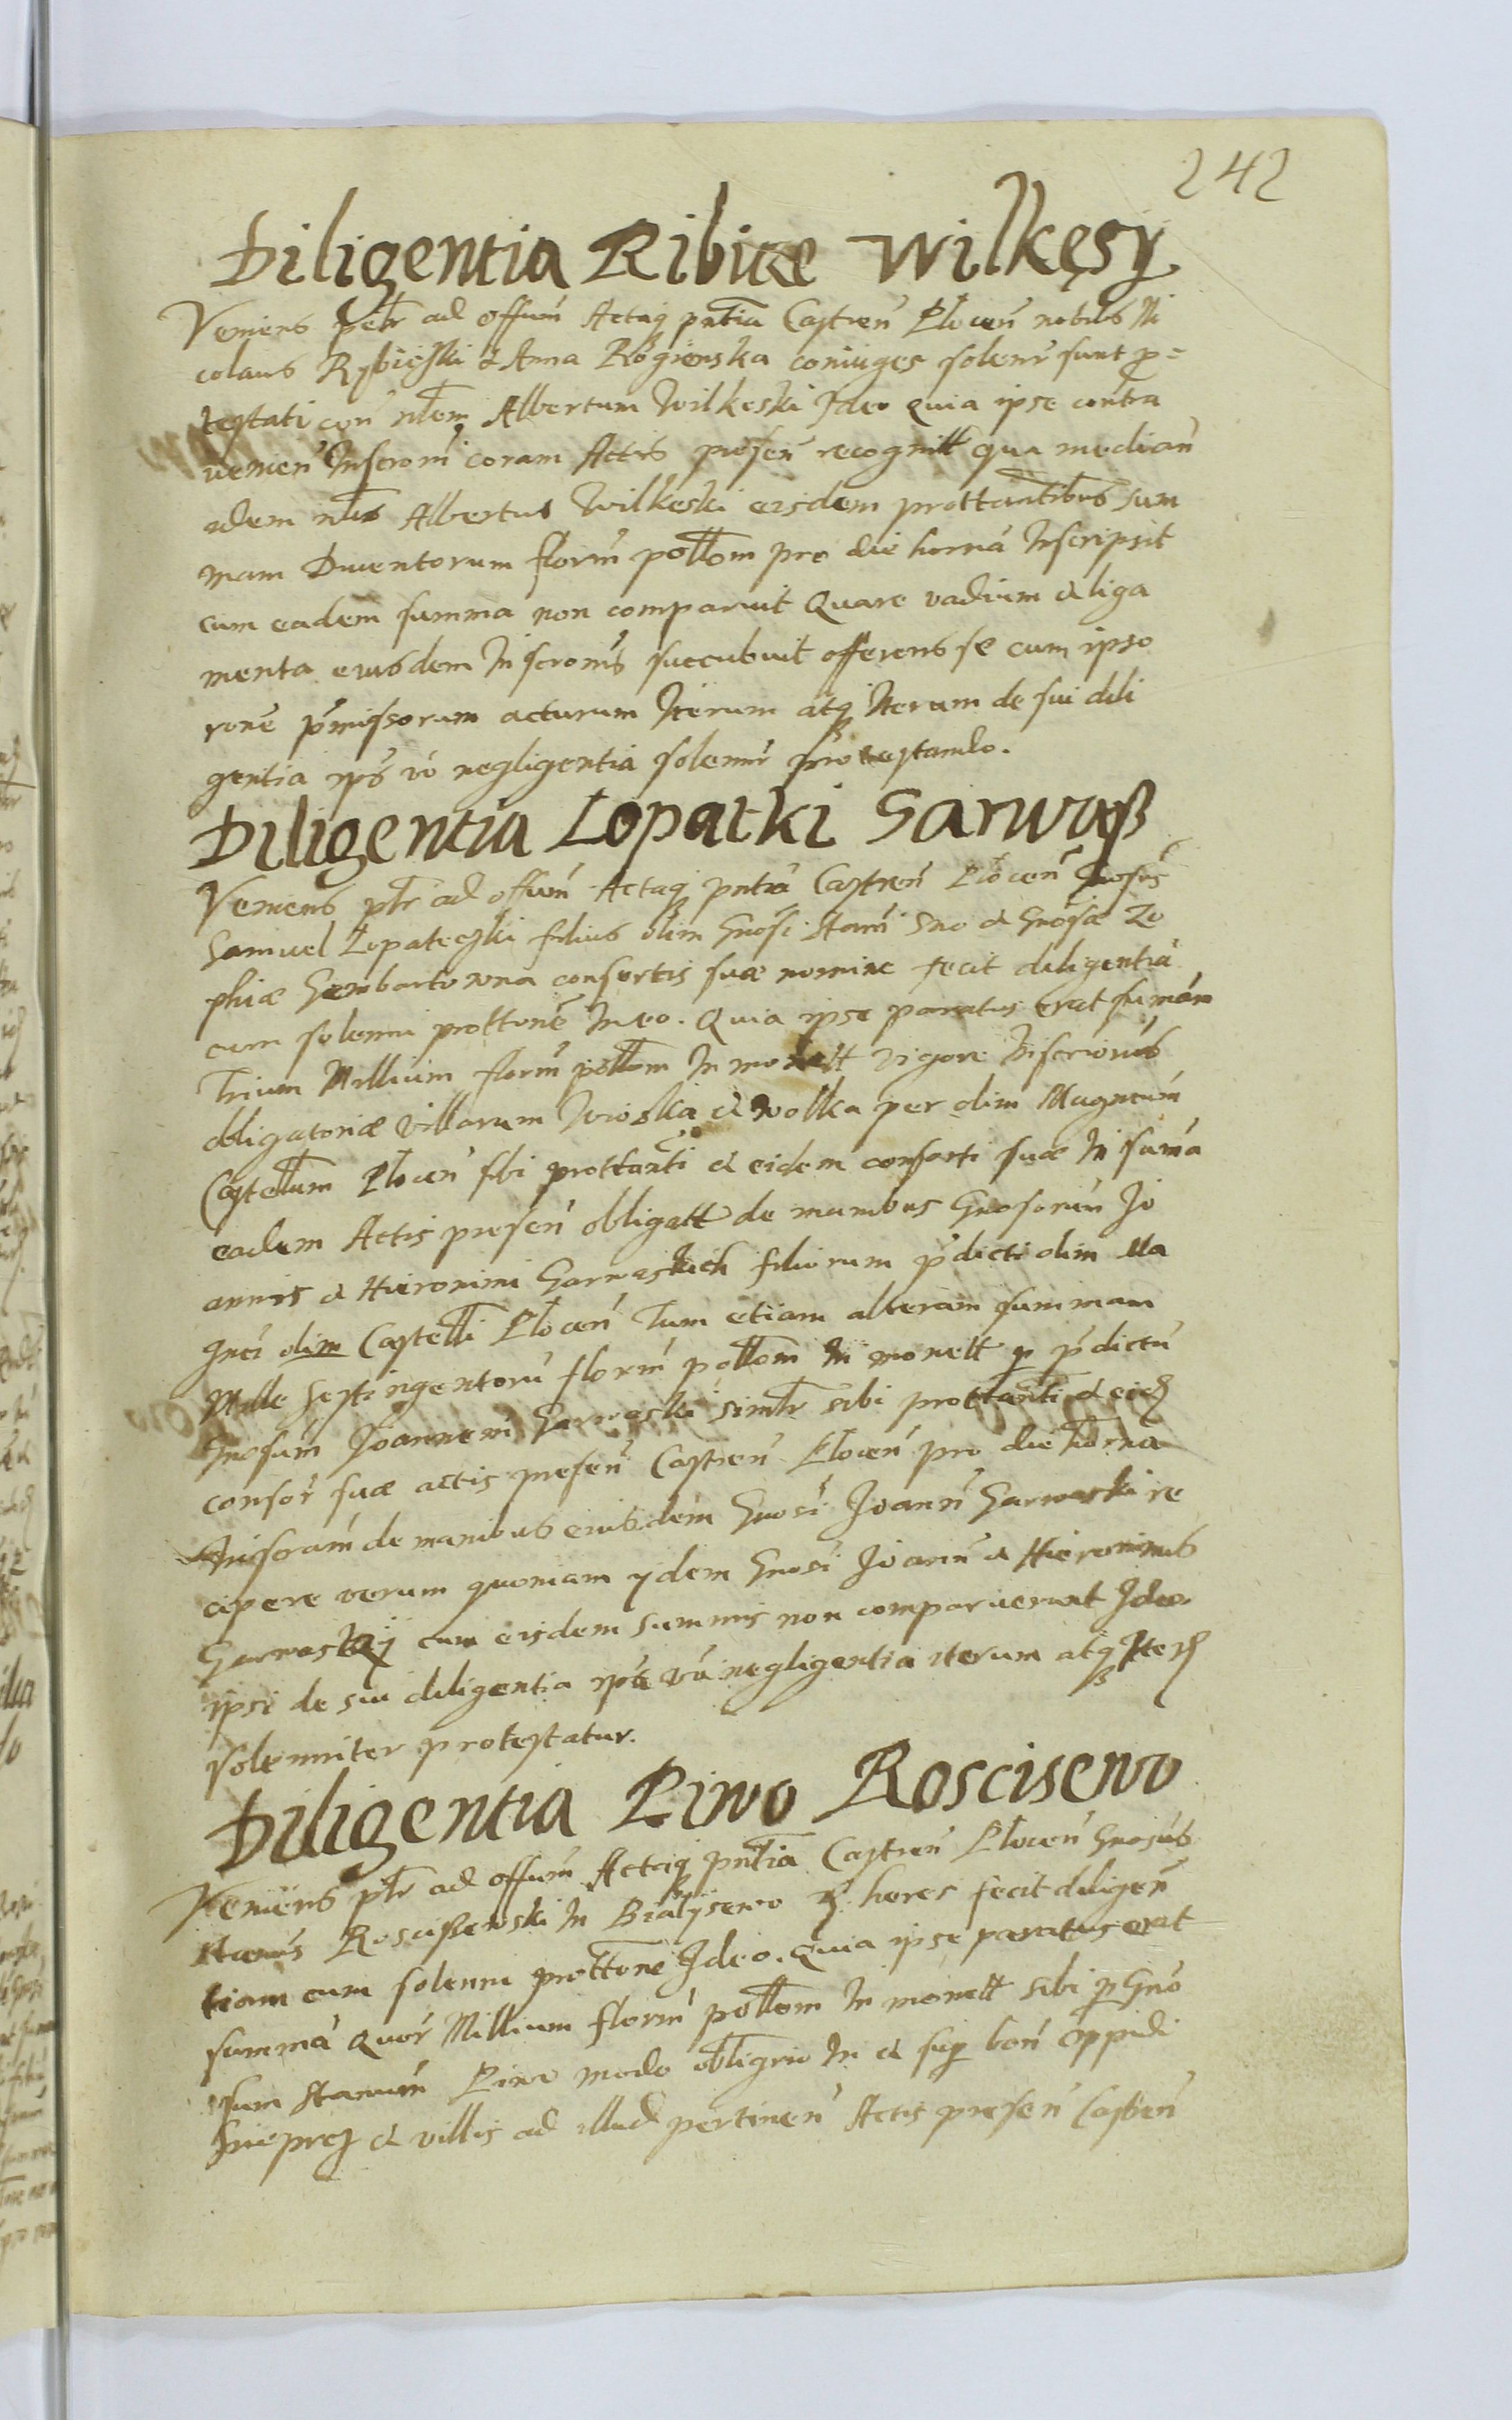 242
Diligentia Ribice Wilkęsy
Veniens pelr ad offum Actaq pntia Castren Plocen nobilis Ni
colaus Rybieski & Anna Rogienska coniuges solenr sunt p=
testati con nlem Albertum Wilkeski Ideo quia ipse contra
venien Inscroni coram Actis presen recognitt qua median
idem nlis Albertus Wilkeski eisdem prottantibus sum
mam Ducentorum florn pollom pro die horna Inscripsit
cum eadem summa non comparuit Quare vadium & liga
menta eiusdem Inscronis succubuit offerens se cum ipso
rone pmissorum acturum Iterum atq Iterum de sui dili
gentia ips vo negligentia solenr protestando.
Diligentia Lopatki Garwaß
Veniens plr ad offum Actaq pntia Castren Plocen Gnosus
Samuel Lopateczki filius olim Gnosi Stani Suo & Gnosæ Zo
phiæ Gembartowna consortis suæ nomine fecit diligentia
cum solenni prottone In eo. Quia ipse paratus erat sumam
Trium Millium florn pollom In monett vigore Inscrionis
obligatoriæ villarum Wioska & Wolka per olim Magncum
Castellum Plocen sibi prottanti & eidem consorti suæ In suma
eadem Actis presen obligatt de manibus Gnosorum Jo
annis & Hieronimi Garwaskich filiorum pdicti olim Ma
gnci olim Castelli Plocen Tum etiam alteram summam
Mille Septingentoru florn pollom In monett p pdictu
Gnosum Joannem Garwaski simlr sibi prottanti & eid
consor suæ actis presen Castren Plocen pro die horna
Inscram de manibus eiusdem Gnosi Joann Garwaski re
cipere verum quoniam ydem Gnosi Joann & Hieronimus
Garwasky cum eisdem summis non comparuerunt Ideo
ipsi de sui diligentia ips vo negligentia iterum atq Iter
solemniter protestatur.
Diligentia Piwo Roscisewo
Veniens plr ad offum Actaq pntia Castren Plocen Gnosus
Stanus Rosciszewski In Bialysewo heres fecit diligen
tiam cum solenni prottone Ideo. Quia ipse paratus erat
summa quor Millium florn pollom In monett sibi p Gno
sum Stanum Piwo modo obligrio In & sup bon oppidi
& villis ad illud pertinen Actis presen Castren